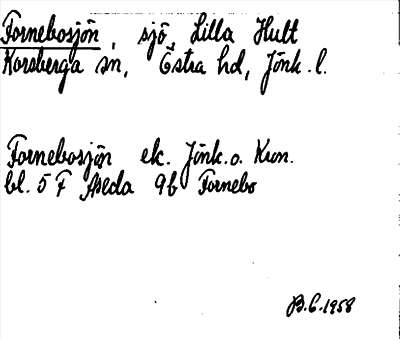 Fornebosjön, sjö, Lilla Hult
Korsberga sn, Östra hd, Jönk. l.
Fornebosjön ek. Jönk. o. Kron.
bl. 5 F Åseda 9b Fornebo
B.C. 1958